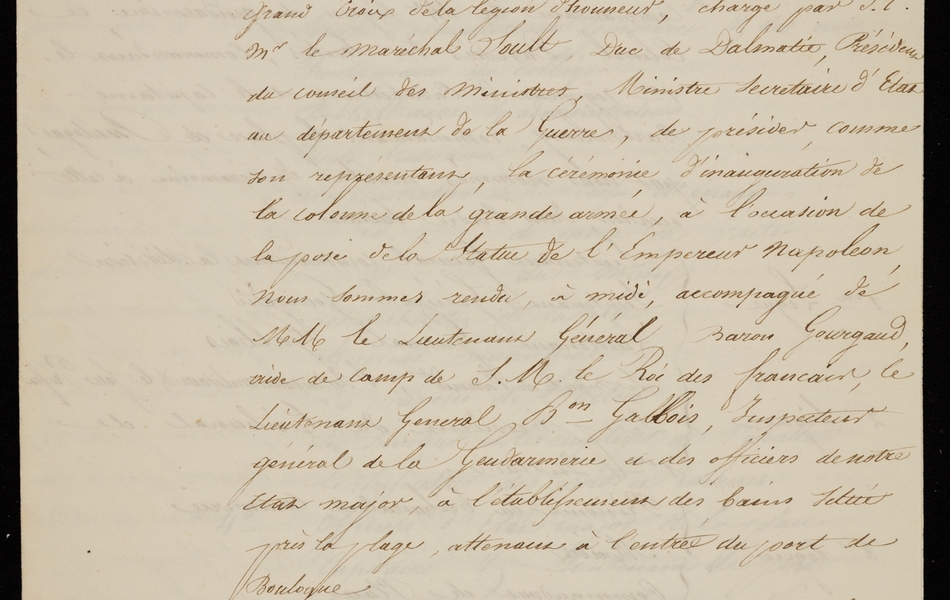 Grand Croix de la légion d'honneur, chargé par S. E.
Mr le maréchal Soult, Duc de Dalmatie, Président
du conseil des Ministres, Ministre Secretaire d'Etat
au département de la Guerre, de présider comme
son représentant, la cérémonie d'inauguration de
la colonne de la grande armée, à l'occasion de
la pose de la Statue de l'Empereur Napoleon,
nous sommes rendu, à midi, accompagné de
MM le Lieutenant Général Baron Gourgaud,
aide de camp de S. M. le Roi des français, le
Lieutenant General Bon Galbois, Inspecteur
général de la Gendarmerie et des officiers de notre
Etat major à l'établissement des bains situé
près la plage, attenant à l'entrée du port de
Boulogne